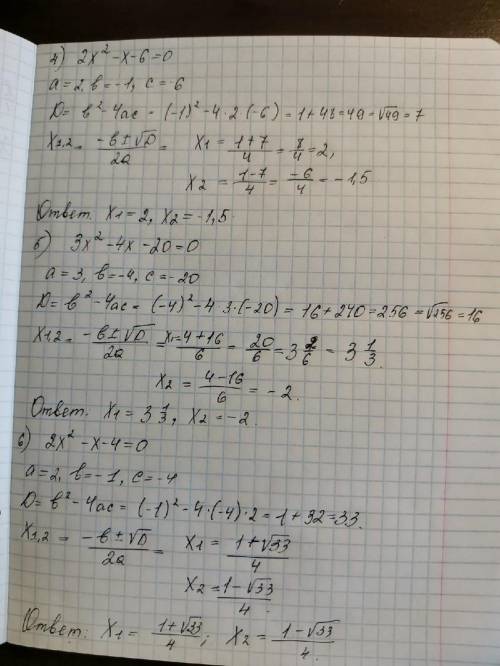 а) 2x² - x - 6 = 0
a = 2, b = -1, c = -6
D = b² - 4ac = (-1)² - 4 · 2 (-6) = 1 + 48 = 49 = √49 = 7
x1,2 = (-b ± √D)/2a = x1 = (1+7)/4 = 8/4 = 2,
x2 = (1-7)/4 = -6/4 = -1,5
Ответ. x1 = 2, x2 = -1,5.
б) 3x² - 4x - 20 = 0
a = 3, b = -4, c = -20
D = b² - 4ac = (-4)² - 4 · 3 · (-20) = 16 + 240 = 256 = √256 = 16
x1,2 = (-b ± √D)/2a = x1 = (4+16)/6 = 20/6 = 3 2/6 = 3 1/3.
x2 = (4-16)/6 = -2.
Ответ. x1 = 3 1/3, x2 = -2.
в) 2x² - x - 4 = 0
a = 2, b = -1, c = -4
D = b² - 4ac = (-1)² - 4 · (-4) · 2 = 1 + 32 = 33.
x1,2 = (-b ± √D)/2a = x1 = (1+√33)/4
x2 = (1-√33)/4.
Ответ: x1 = (1+√33)/4; x2 = (1-√33)/4.